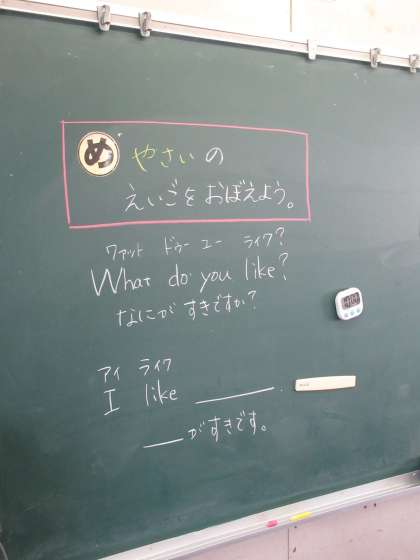 め やさいの
えいごをおぼえよう。
ワァット ドゥー ユー ライク?
What do you like?
なにが すきですか?
アイ ライク
I like ______.
___がすきです。